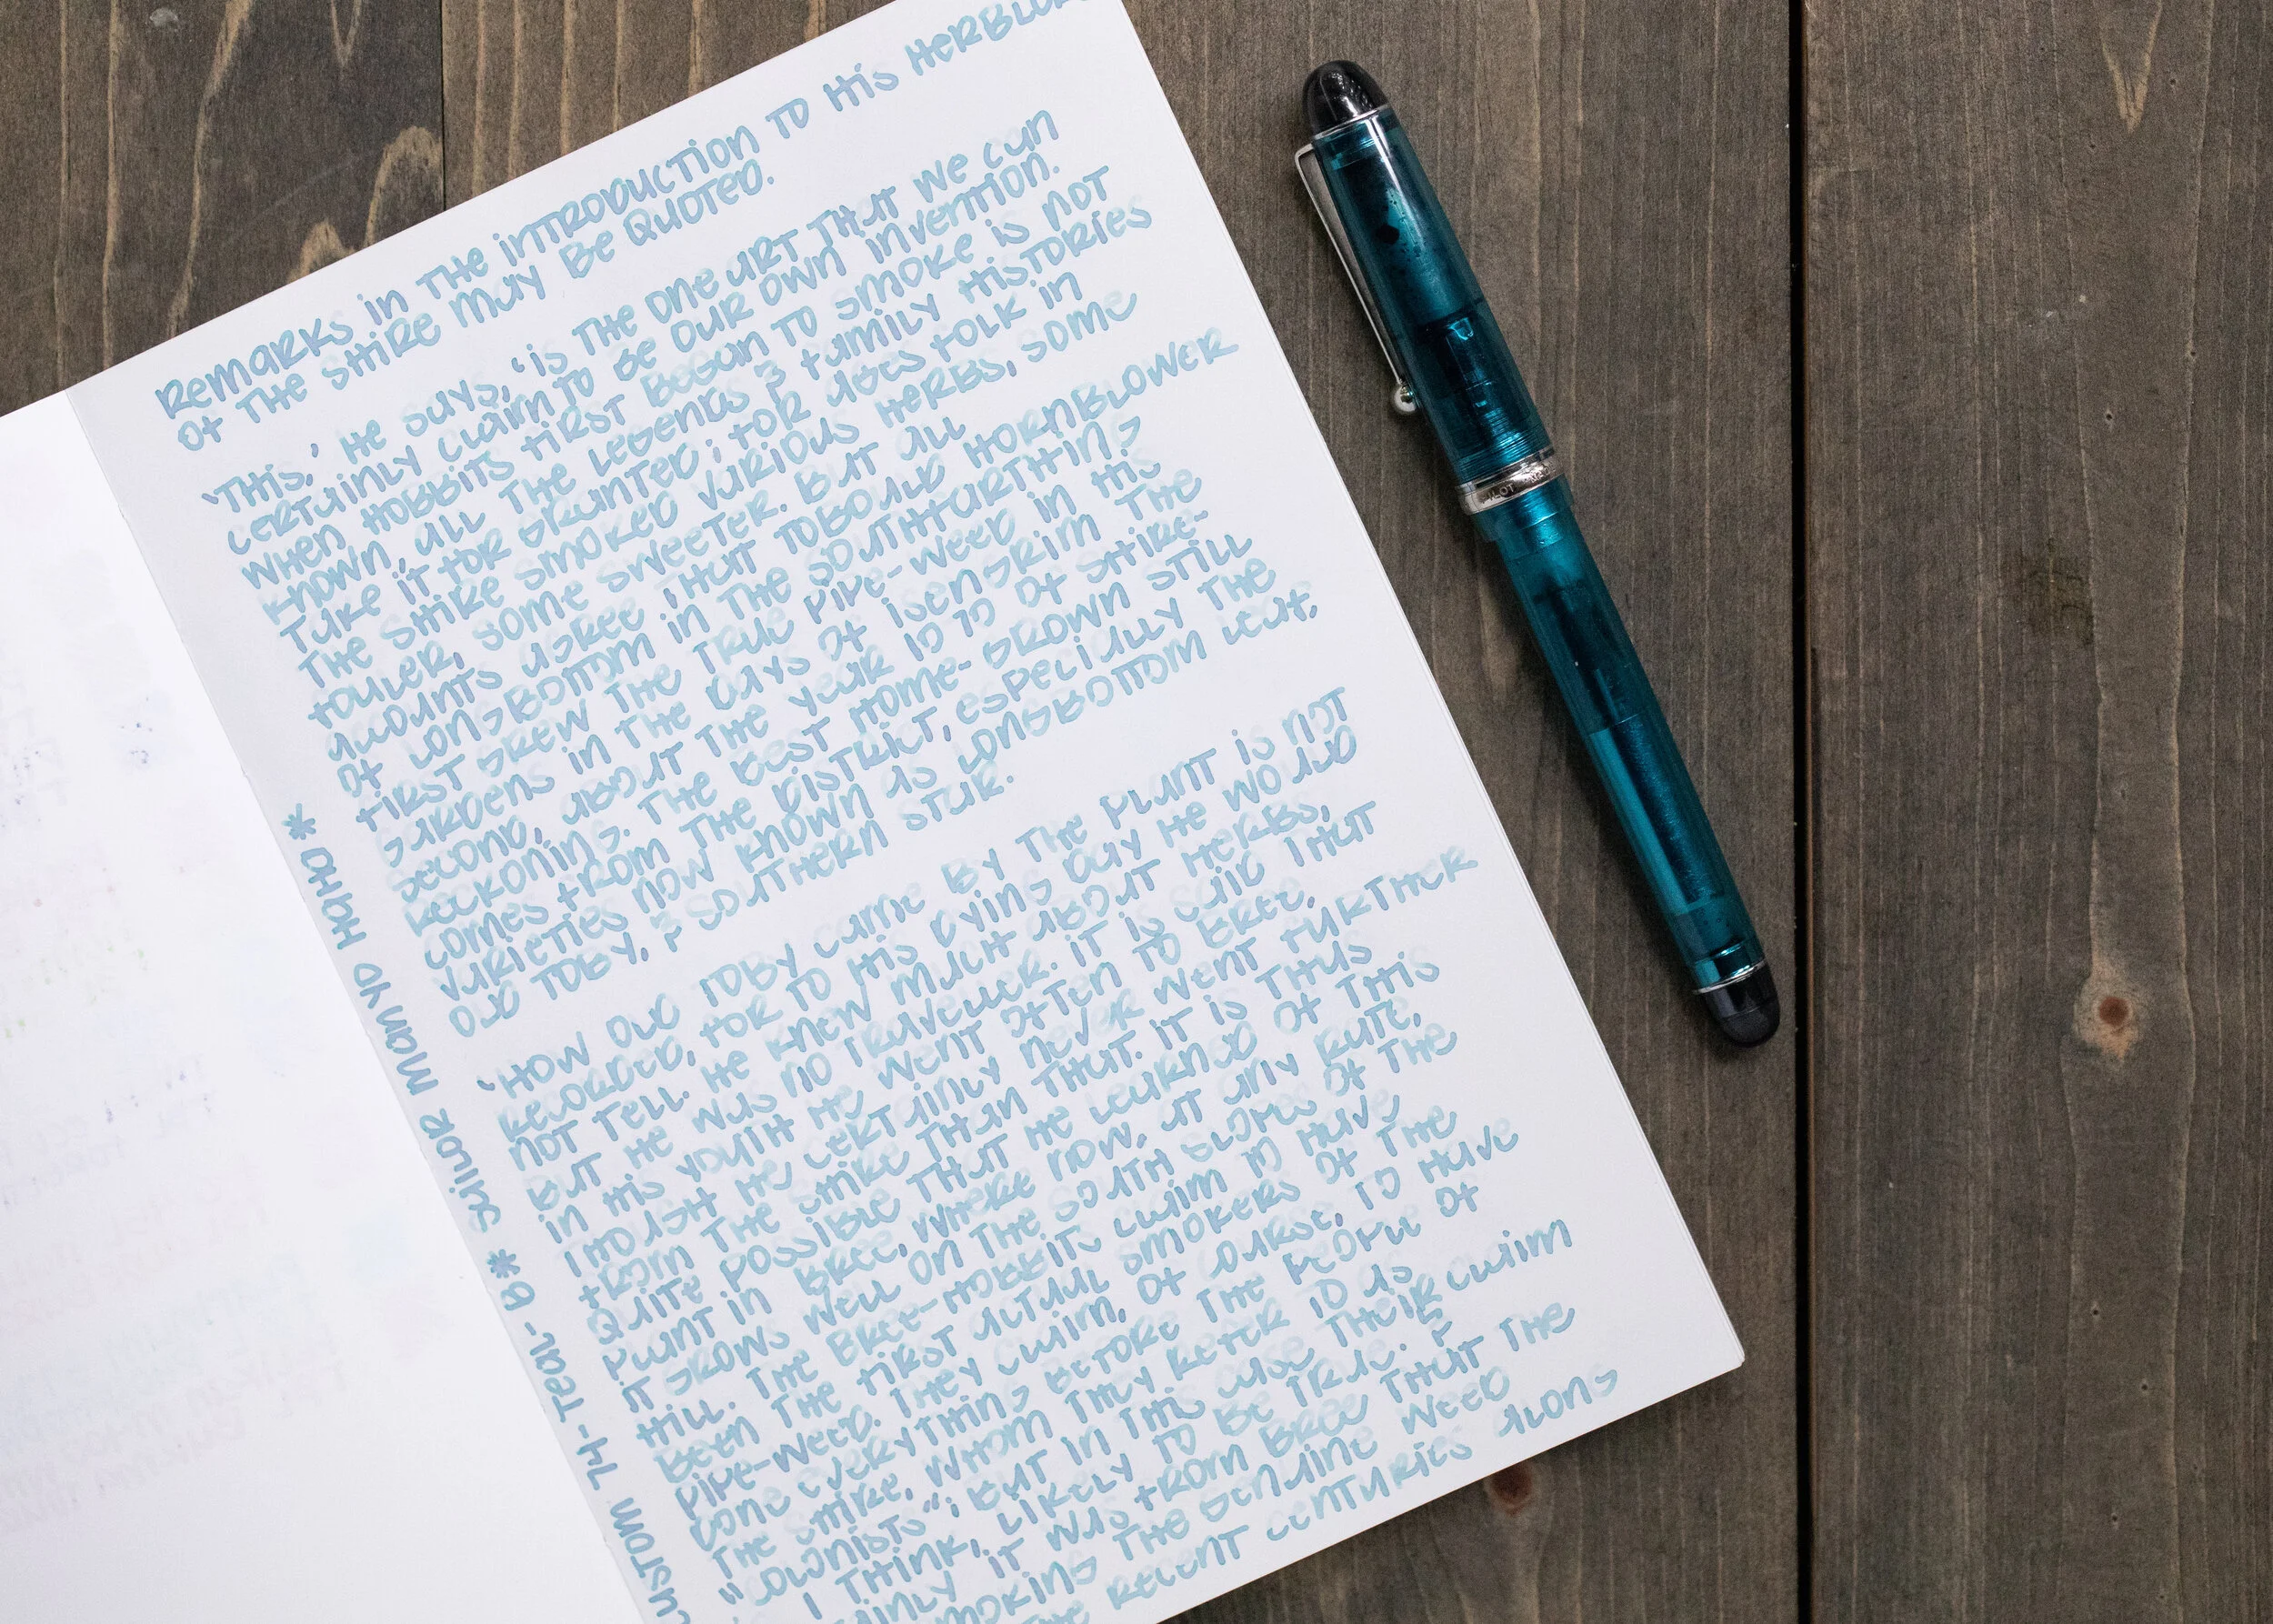 REMARKS in THE INTRODUCTION TO HIS HERBLOR
OF THE SHIRE MAY BE QUOTED.
'THIS,' HE SAYS, 'IS THE ONE ART THAT WE CAN
CERTAINLY CLAIM TO BE OUR OWN INVENTION.
WHEN HOBBITS FIRST BEGAN TO SMOKE IS NOT
KNOWN, ALL THE LEGENDS & FAMILY HISTORIES
TAKE IT FOR GRANTED; FOR AGES FOLK IN
THE SHIRE SMOKED VARIOUS HERBS, SOME
FOULER, SOME SWEETER. BUT ALL
ACCOUNTS AGREE THAT TOBOLD HORNBLOWER
OF LONGBOTTOM IN THE SOUTHFARTHING
FIRST GREW THE TRUE PIPE-WEED IN HIS
GARDENS IN THE DAYS OF ISENGRIM THE
SECOND, ABOUT THE YEAR 1070 OF SHIRE-
RECKONING. THE BEST HOME-GROWN STILL
COMES FROM THE DISTRICT, ESPECIALLY THE
VARIETIES NOW KNOWN AS LONGBOTTOM LEAF,
OLD TOBY, & SOUTHERN STAR.
'HOW OLD TOBY CAME BY THE PLANT IS NOT
RECORDED, FOR TO HIS DYING DAY HE WOULD
NOT TELL. HE KNEW MUCH ABOUT HERBS,
BUT HE WAS NO TRAVELLER. IT IS SAID THAT
IN HIS YOUTH HE WENT OFTEN TO BREE,
THOUGH HE CERTAINLY NEVER WENT FURTHER
FROM THE SHIRE THAN THAT. IT IS THUS
QUITE POSSIBLE THAT HE LEARNED OF THIS
PLANT IN BREE, WHERE NOW, AT ANY RATE,
IT GROWS WELL ON THE SOUTH SLOPES OF THE
HILL. THE BREE-HOBBITS CLAIM TO HAVE
BEEN THE FIRST ACTUAL SMOKERS OF THE
PIPE-WEED. THEY CLAIM, OF COURSE, TO HAVE
DONE EVERYTHING BEFORE THE PEOPLE OF
THE SHIRE, WHOM THEY REFER TO AS
"COLONISTS"; BUT IN THIS CASE THEIR CLAIM
I THINK, LIKELY TO BE TRUE. &
AINLY IT WAS FROM BREE THAT THE
MOKING THE GENUINE WEED
THE RECENT CENTURIES ALONG
USTOM 74-TEAL-B * SAILOR MANYO HAHA *
PILOT